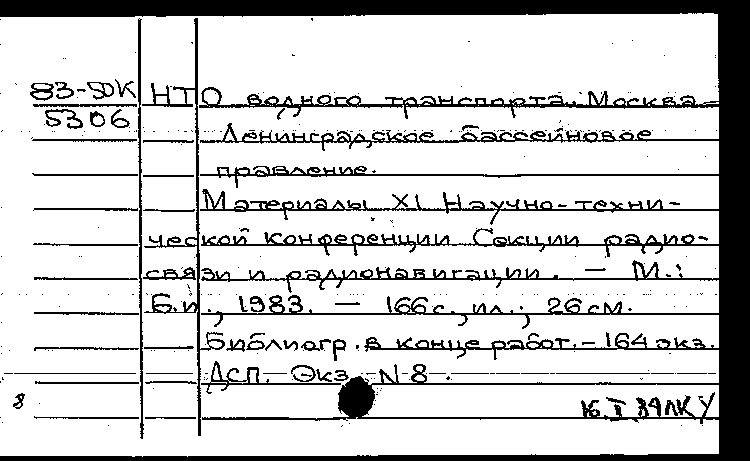 83-50К НТО водного транспорта. Москва-
5306 Ленинградское бассейновое
правление.
Материалы XI Научно-техни-
ческой конференции Секции радио-
связи и радионавигации. — М.:
Б.и., 1983. — 166с., ил.; 26см.
Библиогр. в конце работ. - 164 экз.
Дсп. Экз. N 8.
8
16.V.84